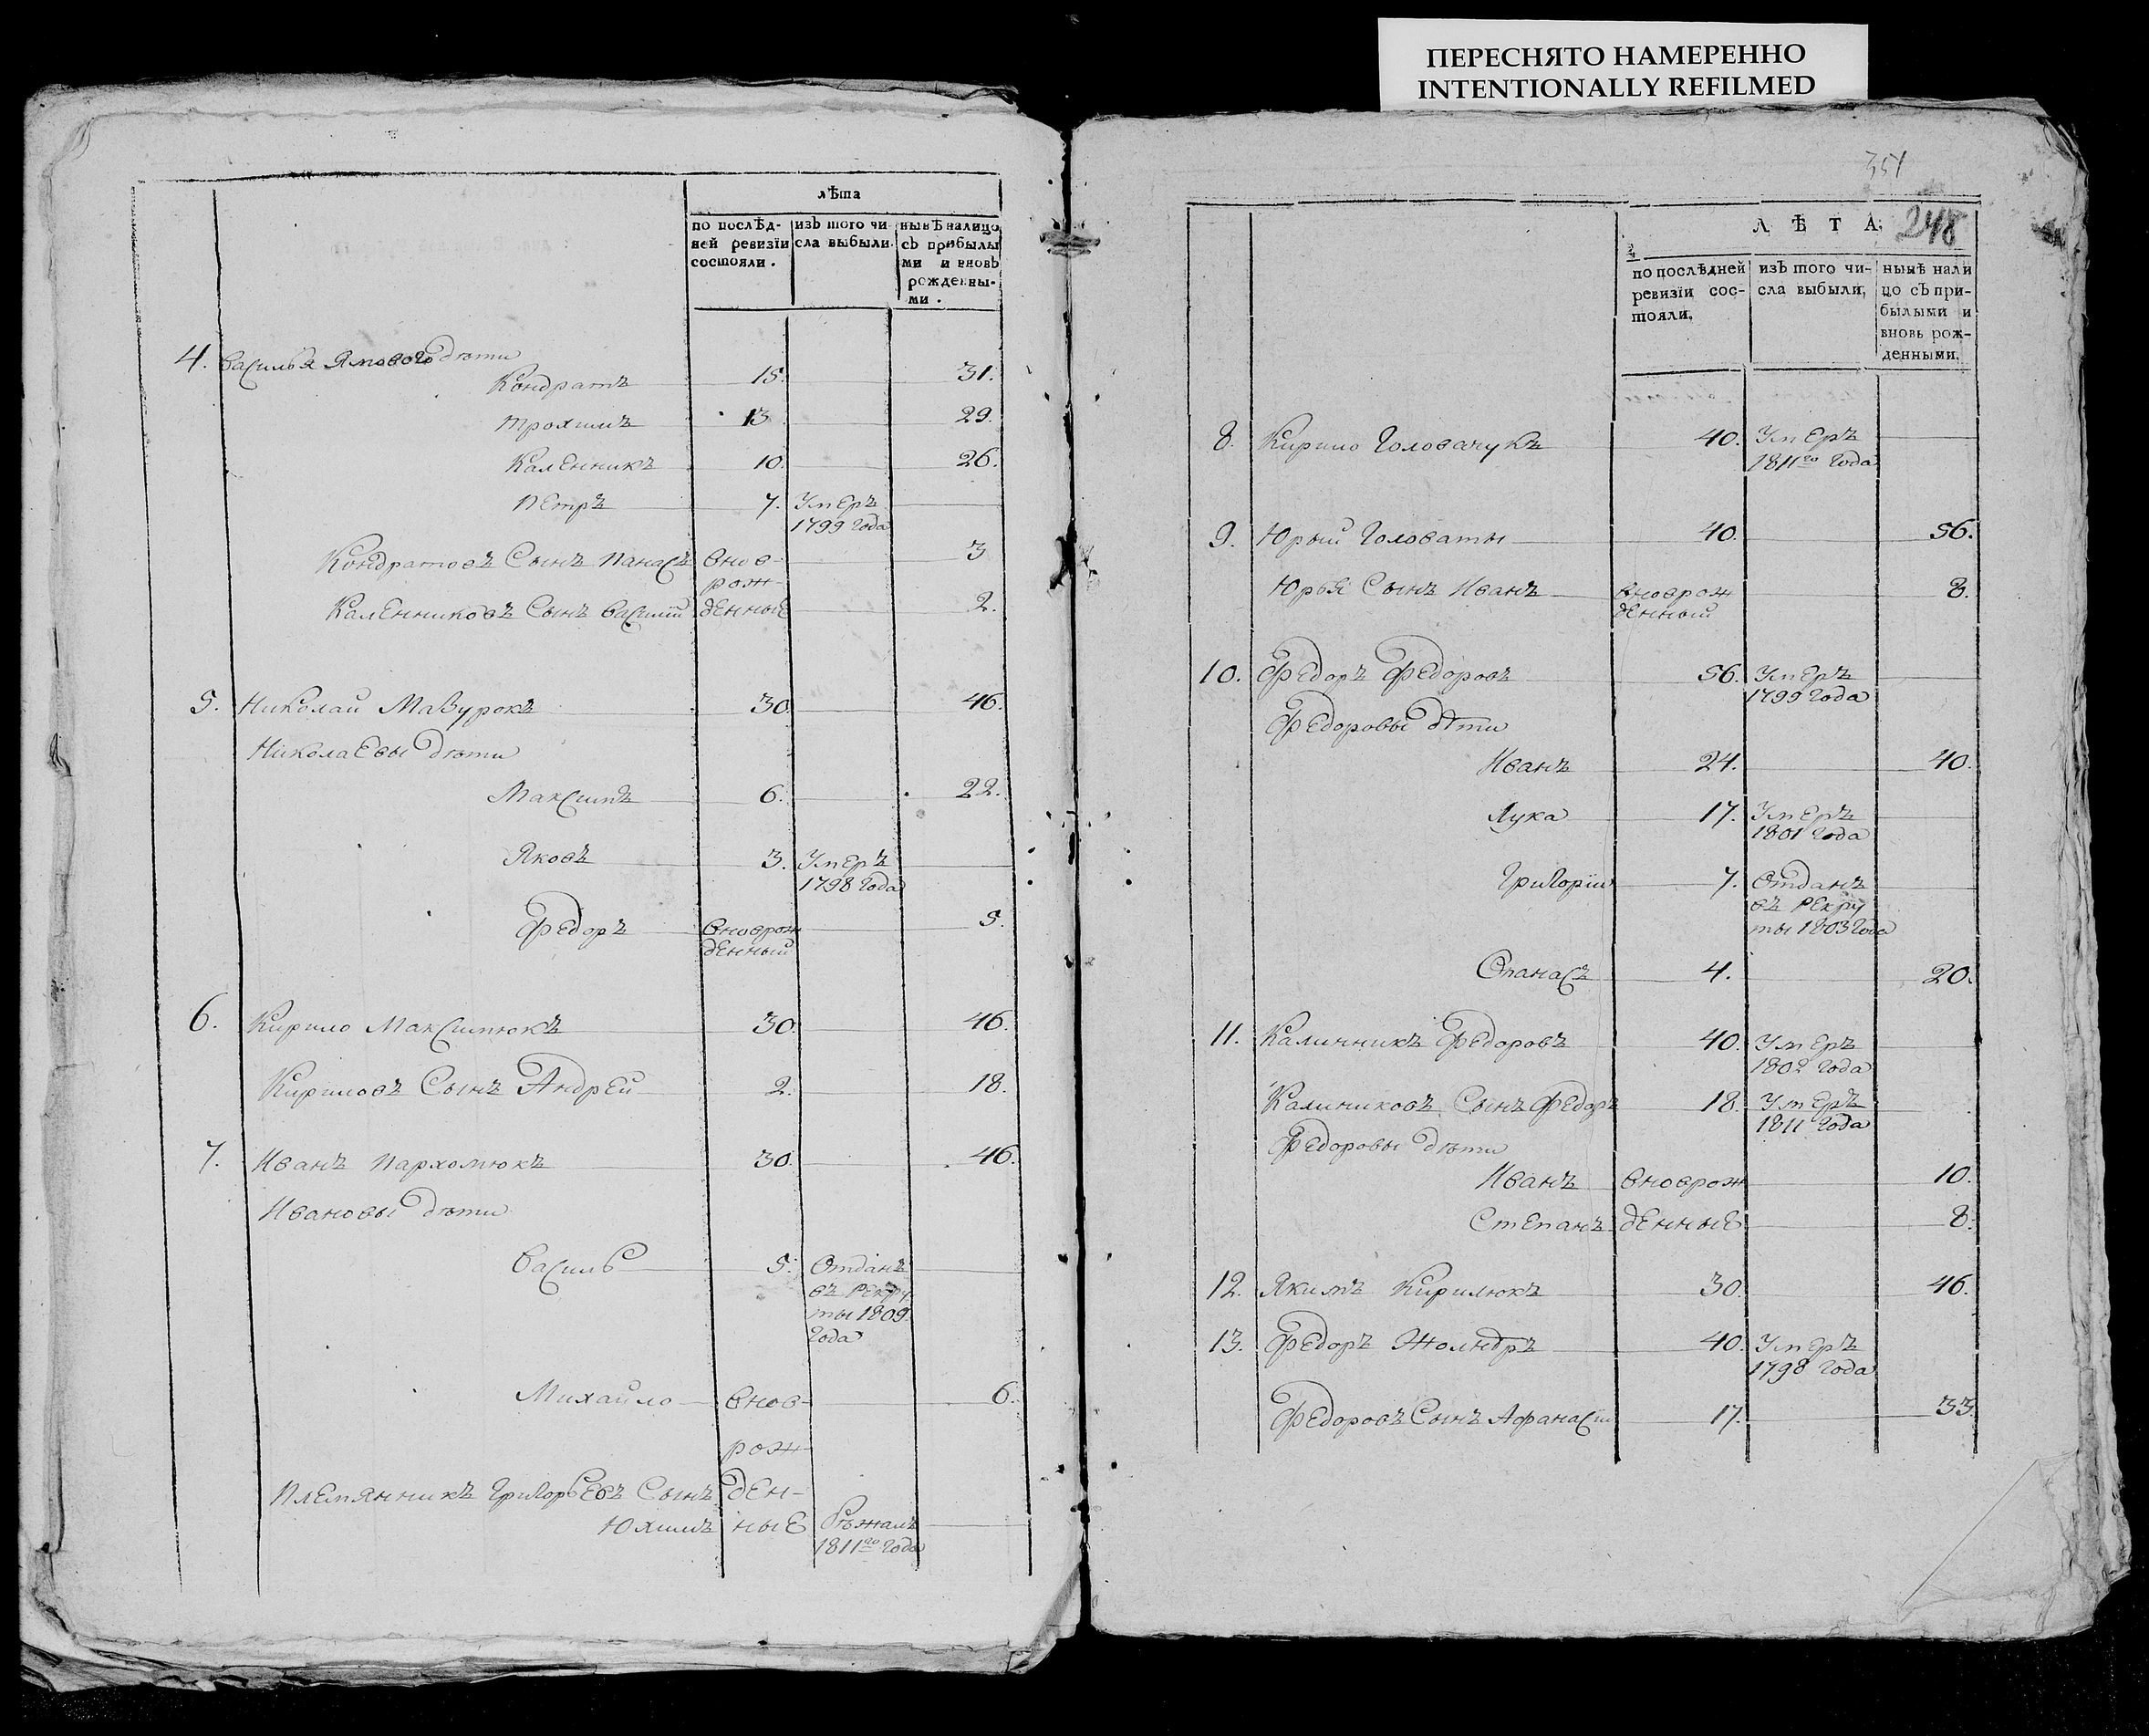 ПЕРЕСНЯТО НАМЕРЕННО
INTENTIONALLY REFILMED
лѣта
по послѣд-
ней ревизїи
состояли.
изъ того чи-
сла выбыли.
нынѣ налицо
съ прибылы
ми и вновь
рожденны-
ми.
4. Василья дѣти
Кондратъ 15. 31.
Трохимъ 13 29.
Каленникъ 10. 26.
Петръ 7. Умеръ
1799 года
Кондратовъ Сынъ Панасъ внов- 3
рож-
Каленниковъ Сынъ Василій денные 2.
5. Николай Мазурокъ 30. 46.
Николаевы дѣти
Максимъ 6. 22.
Яковъ 3. Умеръ
1798 года
Федоръ вноврож 5.
денный
6. Кирило Максимюкъ 30. 46.
Кириловъ Сынъ Андрей 2. 18.
7. Иванъ Пархомюкъ 30. 46.
Ивановы дѣти
Василь 5. Отданъ
въ рекру
ты 1809.
года
Михайло внов- 6.
рож-
Племянникъ Григорьевъ Сынъ ден-
Юхимъ ные бѣжалъ
1811го года
351
ЛѢТА. 248
по послѣдней
ревизїи сос-
тояли.
изъ того чи-
сла выбыли,
нынѣ нали
цо съ при-
былыми и
вновь рож-
денными.
8. Кирило Головачукъ 40. Умеръ
1811го года
9. Юрый Головаты 40. 56.
Юрья Сынъ Иванъ вноврож 8.
денный
10. Федоръ Федоровъ 56. Умеръ
1799 года
Федоровы дѣти
Иванъ 24. 40.
Лука 17. Умеръ
1801 года
Григорій 7. Отданъ
въ рекру
ты 1803 года
Опанасъ 4. 20.
11. Калинникъ Федоровъ 40. Умеръ
1802 года
Калиниковъ Сынъ Федоръ 18. Умеръ
1811 года
Федоровы дѣти
Иванъ вноврож 10.
Степанъ денные 8.
12. Якимъ Кирилюкъ 30. 46.
13. Федоръ 40. Умеръ
1798 года
Федоровъ Сынъ Афанасій 17. 33.